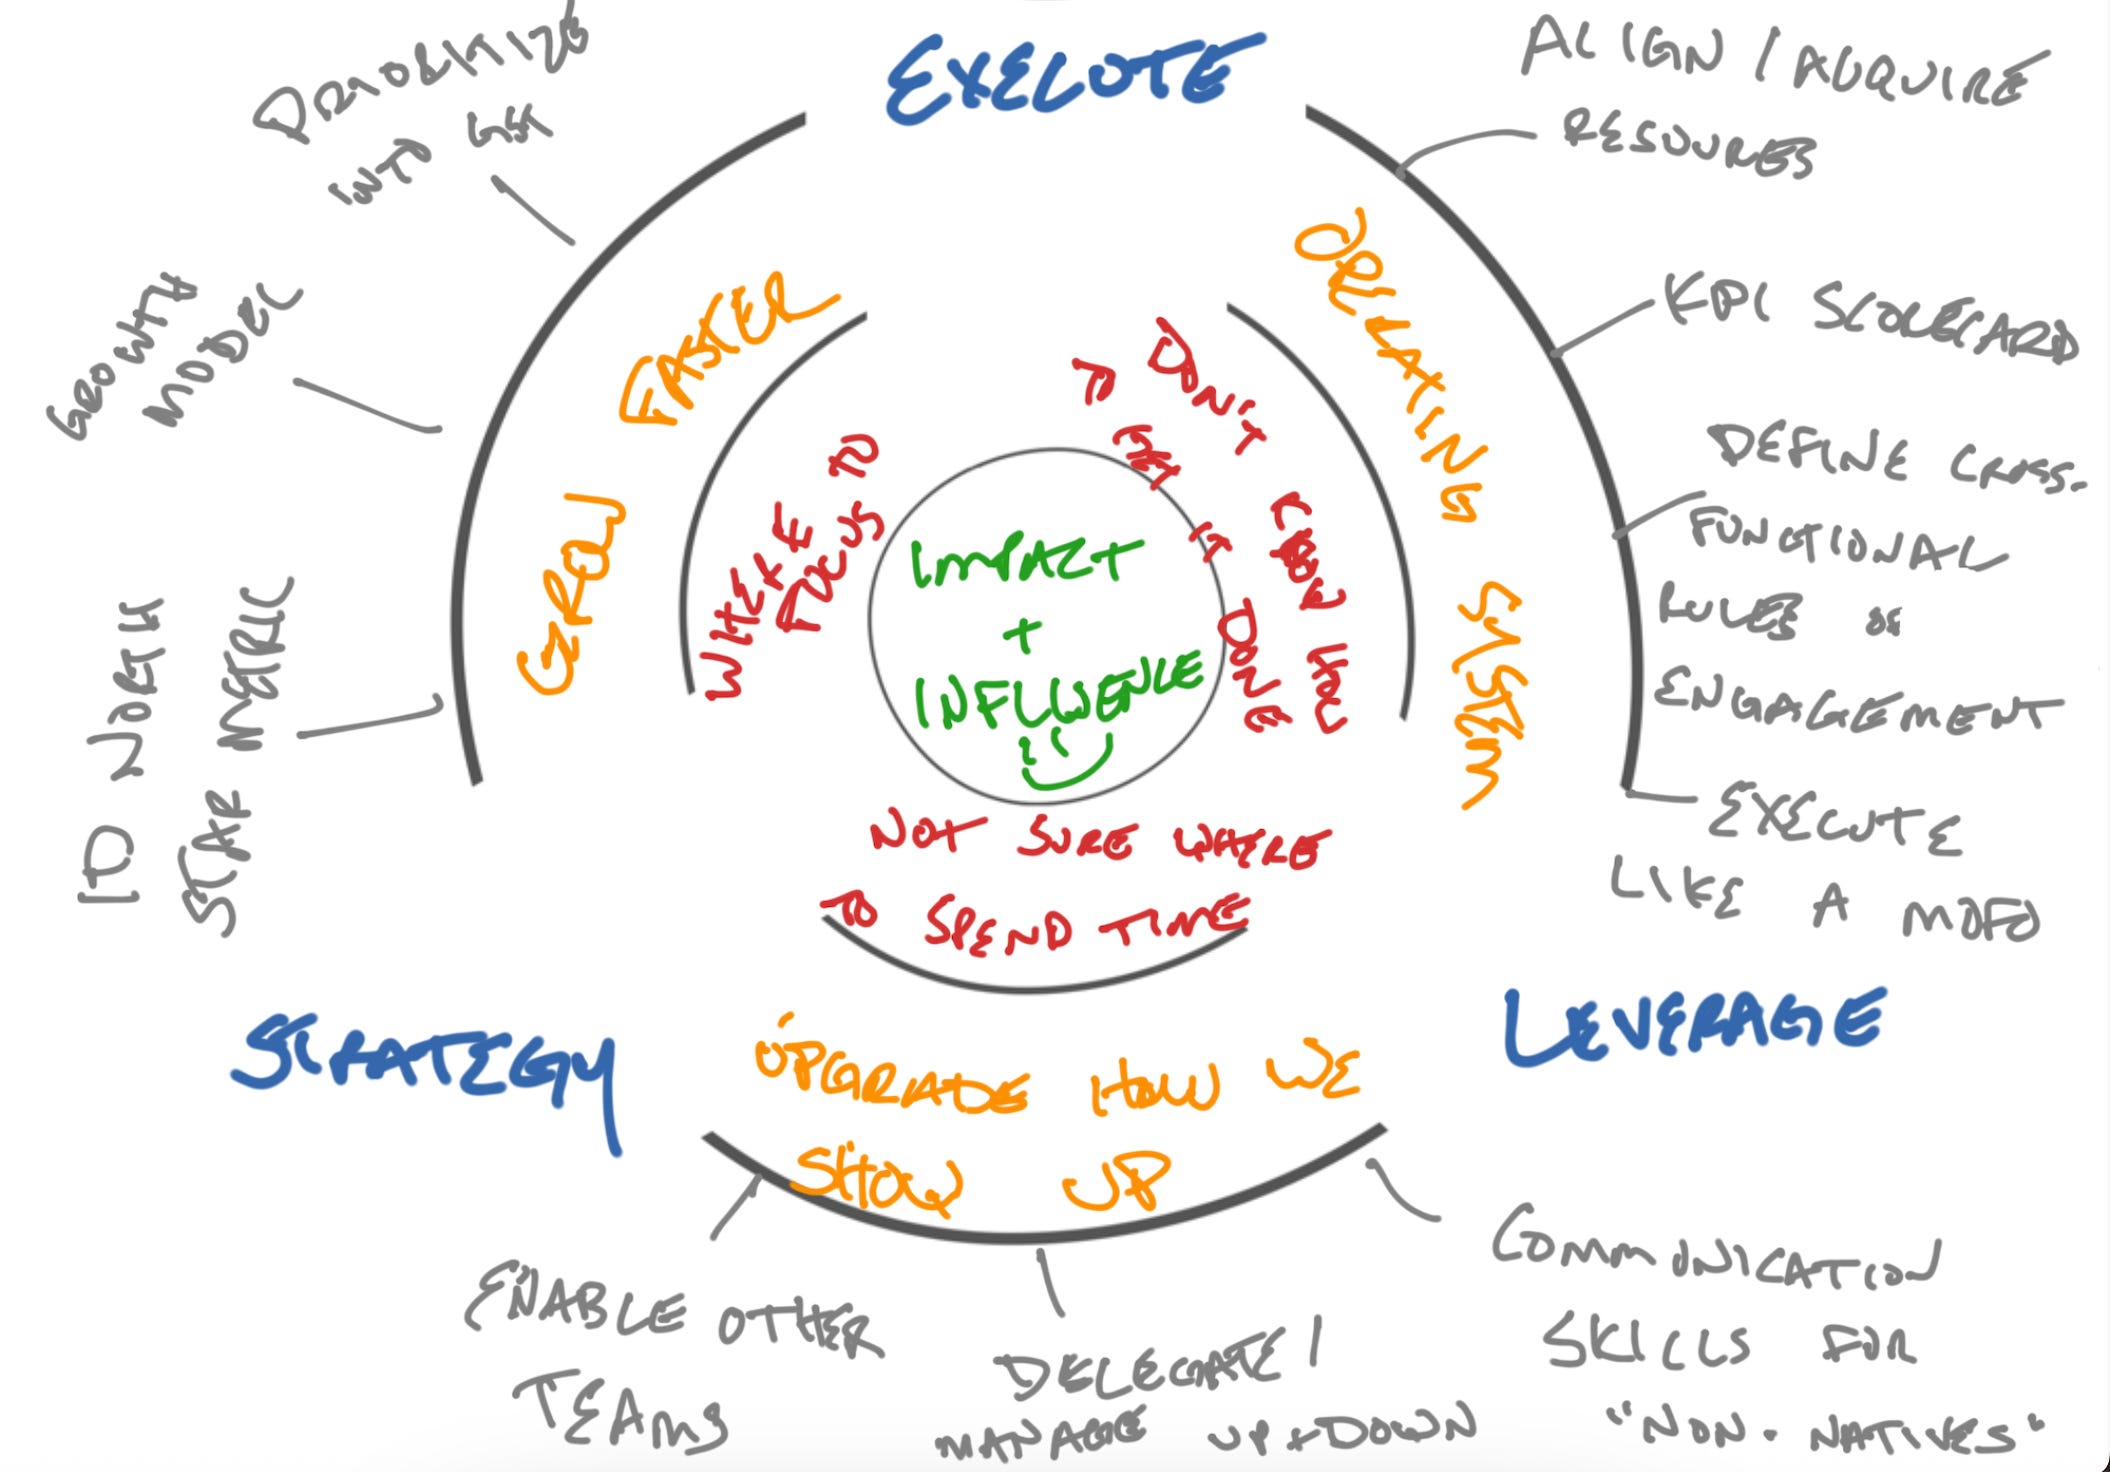 EXECUTE
PRIORITIZE
INTO GST
GROWTH
MODEL
ID NORTH
STAR METRIC
GROW FASTER
WHERE TO
FOCUS
IMPACT
+
INFLUENCE
DON'T KNOW HOW
TO GET IT DONE
OPERATING SYSTEM
ALIGN / ACQUIRE
RESOURCES
KPI SCORECARD
DEFINE CROSS-
FUNCTIONAL
RULES OF
ENGAGEMENT
EXECUTE
LIKE A MOFO
NOT SURE WHERE
TO SPEND TIME
STRATEGY
LEVERAGE
UPGRADE HOW WE
SHOW UP
ENABLE OTHER
TEAMS
DELEGATE /
MANAGE UP + DOWN
COMMUNICATION
SKILLS FOR
"NON-NATIVES"